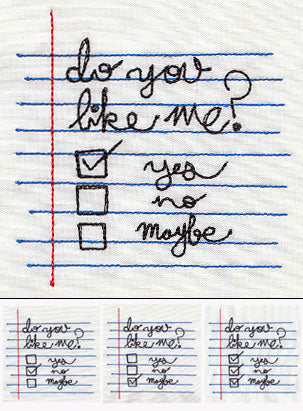 do you
like me?
yes
no
maybe
do you
like me?
yes
no
maybe
do you
like me?
yes
no
maybe
do you
like me?
yes
no
maybe